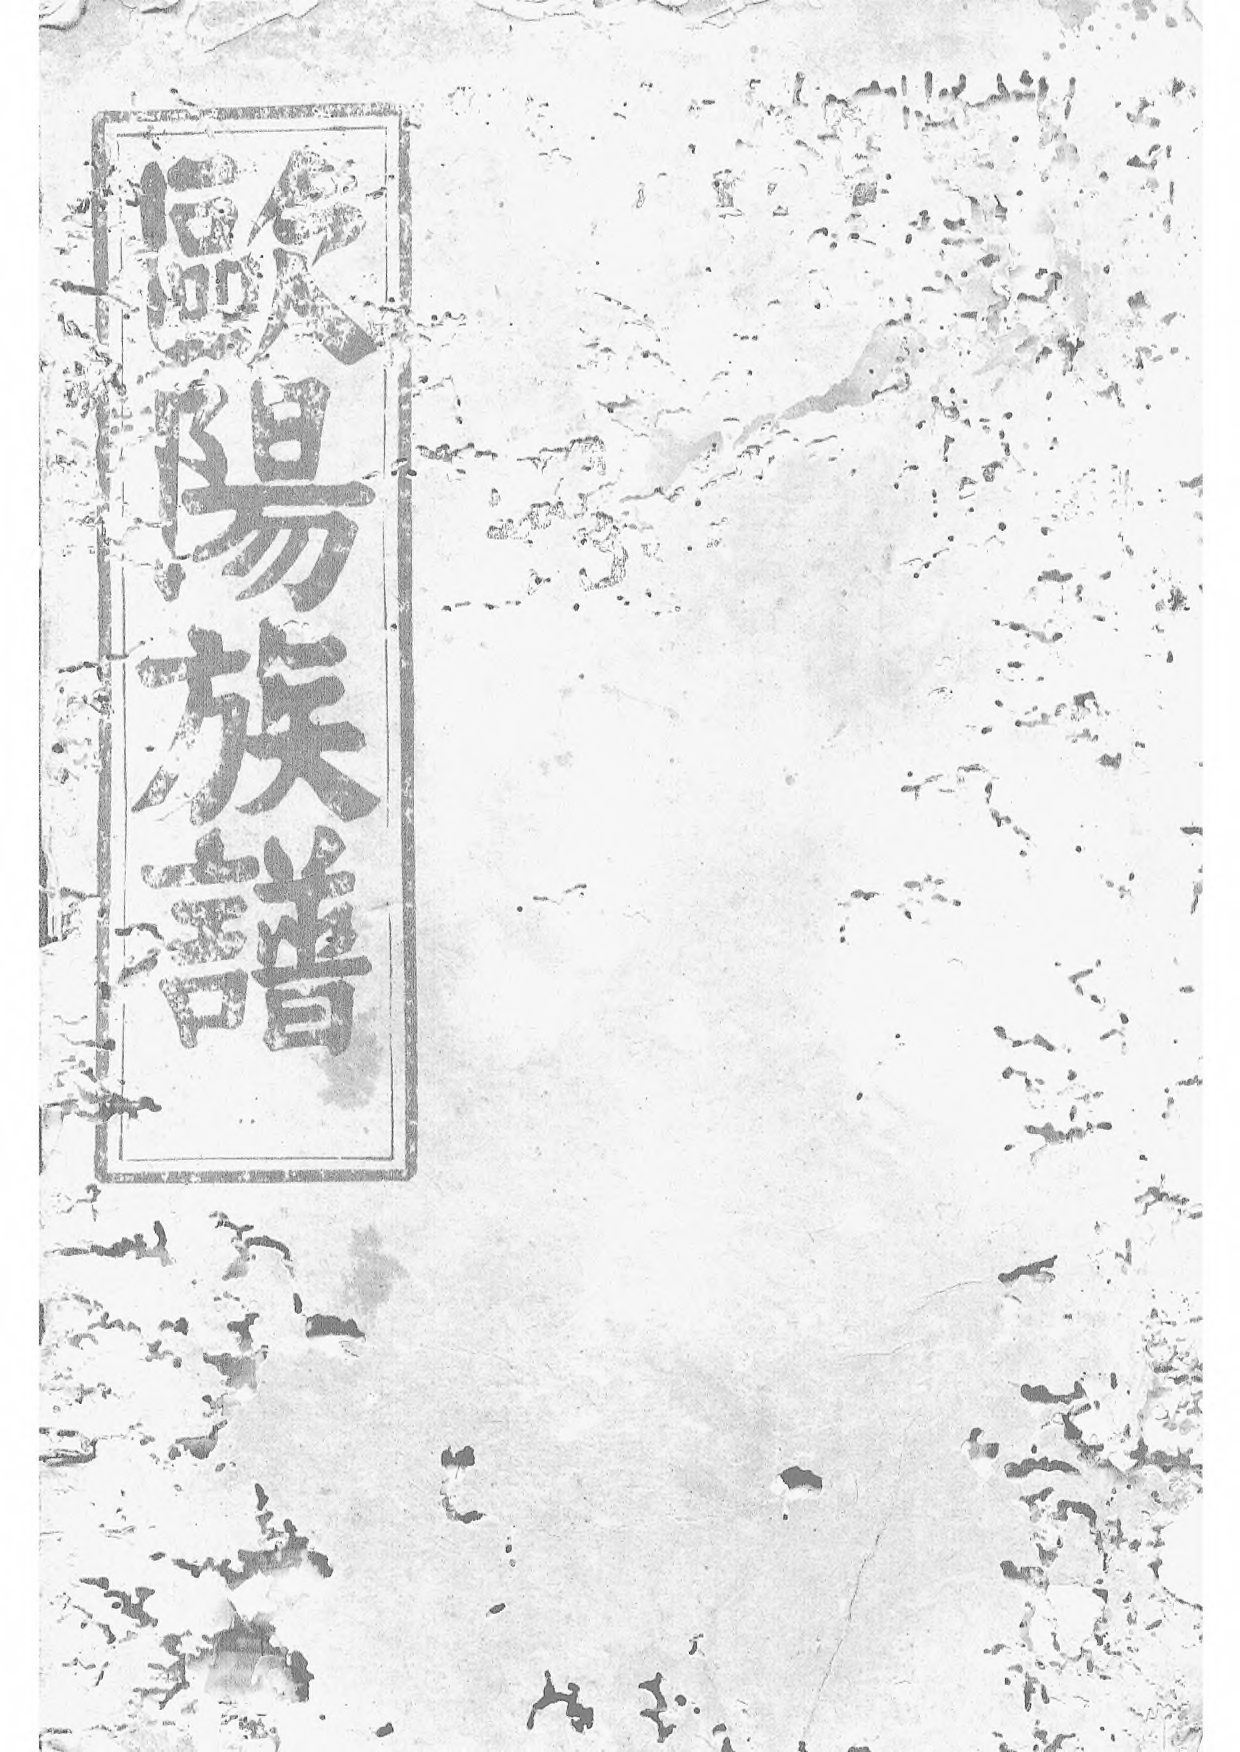 歐陽族譜